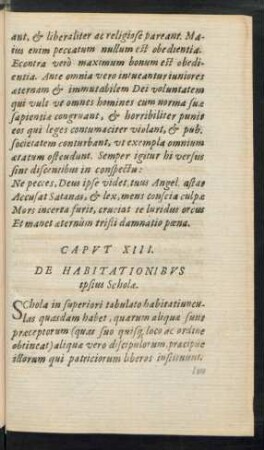 ant, & liberaliter ac religiosè pareant. Ma-
ius enim peccatum nullum est obedientia.
Econtra verò maximum bonum est obedi-
entia. Ante omnia vero intueantur iuniores
æternam & immutabilem Dei voluntatem
qui vult ut omnes homines cum norma suæ
sapientiæ congruant, & horribiliter punit
eos qui leges contumaciter violant, & pub.
societatem conturbant, ut exempla omnium
ætatum ostendunt. Semper igitur hi versus
sint discentibus in conspectu:
Ne pecces, Deus ipse videt, tuus Angel. astat
Accusat Satanas, & lex, mens conscia culpæ
Mors incerta furit, cruciat te luridus orcus
Et manet æternùm tristi damnatio pœna.
CAPVT XIII.
DE HABITATIONIBVS
ipsius Scholæ.
SChola in superiori tabulato habitatiuncu-
las quasdam habet, quarum aliquæ sunt
præceptorum (quas suo quisq; loco ac ordine
obtineat) aliquæ vero discipulorum, præcipuè
illorum qui patriciorum liberos instituunt.